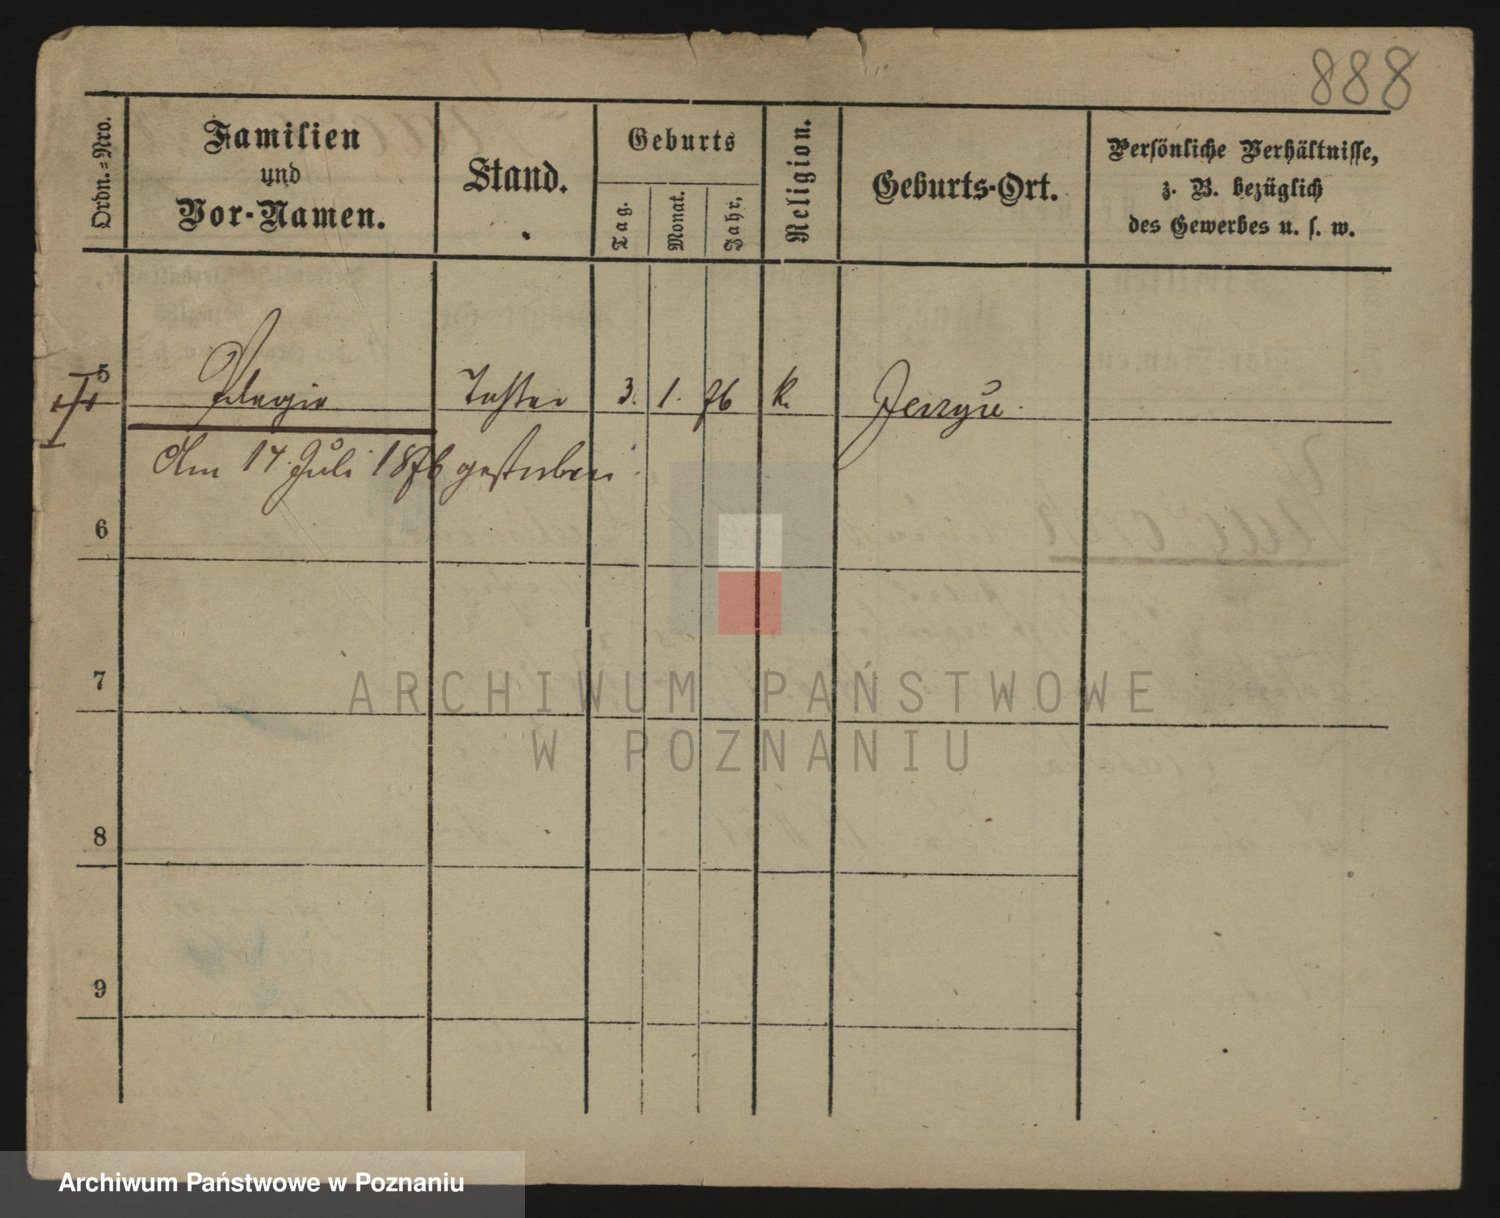 888
Ordn.-Nro.
Familien
und
Vor-Namen.
Stand.
Geburts
Tag.
Monat.
Jahr.
Religion.
Geburts-Ort.
Persönliche Verhältnisse,
z. B. bezüglich
des Gewerbes u. s. w.
5 Pelagie Tochter 3. 1. 76 k.
Am 17 Juli 1876 gestorben
6
7
8
9
ARCHIWUM PAŃSTWOWE
W POZNANIU
Archiwum Państwowe w Poznaniu